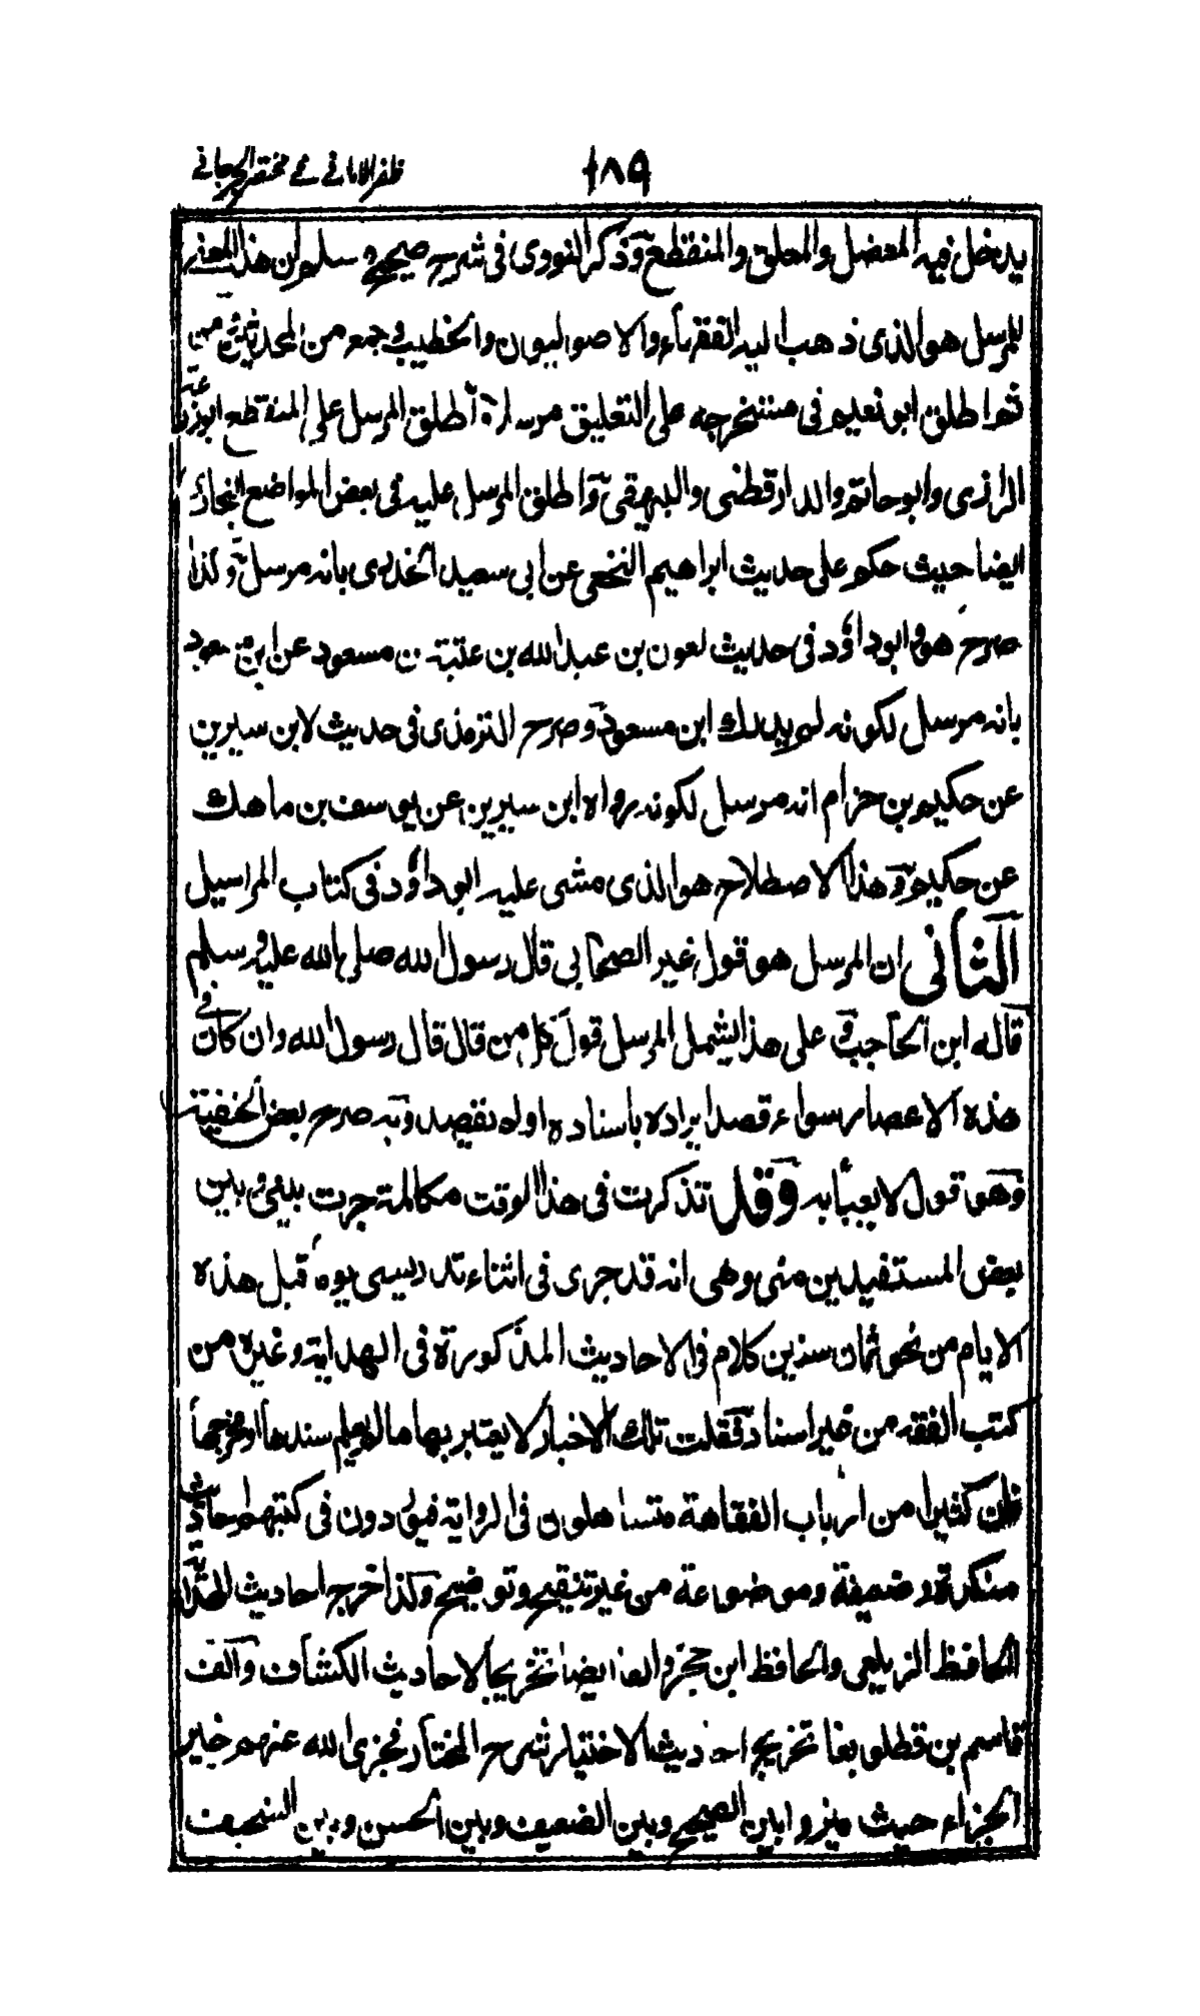 ١٨٩
ظفر الاماني في مختصر الجرجاني
يدخل فيه المعضل والمعلق والمنقطع وذكر النووى فى شرح صحيح مسلم ان هذا المعنى
للمرسل هو الذى ذهب اليه الفقهاء والاصوليون والخطيب وجمع من المحدثين ومن
ثم اطلق ابو نعيم فى مستخرجه على التعليق مرسلا و اطلق المرسل على المنقطع ابو زرعة
الرازى وابو حاتم والدارقطنى والبيهقى و اطلق المرسل عليه فى بعض المواضع البخارى
ايضا حيث حكم على حديث ابراهيم النخعى عن ابى سعيد الخدرى بانه مرسل وكذا
صرح هو وابو داؤد فى حديث لعون بن عبد الله بن عتبة بن مسعود عن ابن مسعود
بانه مرسل لكونه لم يدرك ابن مسعود وصرح الترمذى فى حديث لابن سيرين
عن حكيم بن حزام انه مرسل لكونه رواه ابن سيرين عن يوسف بن ماهك
عن حكيم وهذا الاصطلاح هو الذى مشى عليه ابو داؤد فى كتاب المراسيل
الثانى ان المرسل هو قول غير الصحابى قال رسول الله صلى الله عليه وسلم
قاله ابن الحاجب و على هذا يشمل المرسل قول كل من قال قال رسول الله وان كان فى
هذه الاعصار سواء قصد ايراده باسناده اولم يقصد وبه صرح بعض الحنفية
وهو قول لا يعبأ به وقد تذكرت فى هذا الوقت مكالمة جرت بينى وبين
بعض المستفيدين منى وهى انه قد جرى فى اثناء تدريسى يوما قبل هذه
الايام من نحو ثمان سنين كلام فى الاحاديث المذكورة فى الهداية وغيره من
كتب الفقه من غير اسناد فقلت تلك الاخبار لا يعتبر بها ما لم يعلم سندها او مخرجها
فان كثيرا من ارباب الفقاهة متساهلون فى الرواية فيوردون فى كتبهم احاديث
منكرة وضعيفة وموضوعة من غير تنقيح وتوضيح وكذا خرج احاديث الهداية
الحافظ الزيلعى والحافظ ابن حجر والفا ايضا تخريجا لاحاديث الكشاف والف
قاسم بن قطلوبغا تخريج احاديث الاختيار شرح المختار فجزى الله عنهم خير
الجزاء حيث ميزوا بين الصحيح وبين الضعيف وبين الحسن وبين السخيف